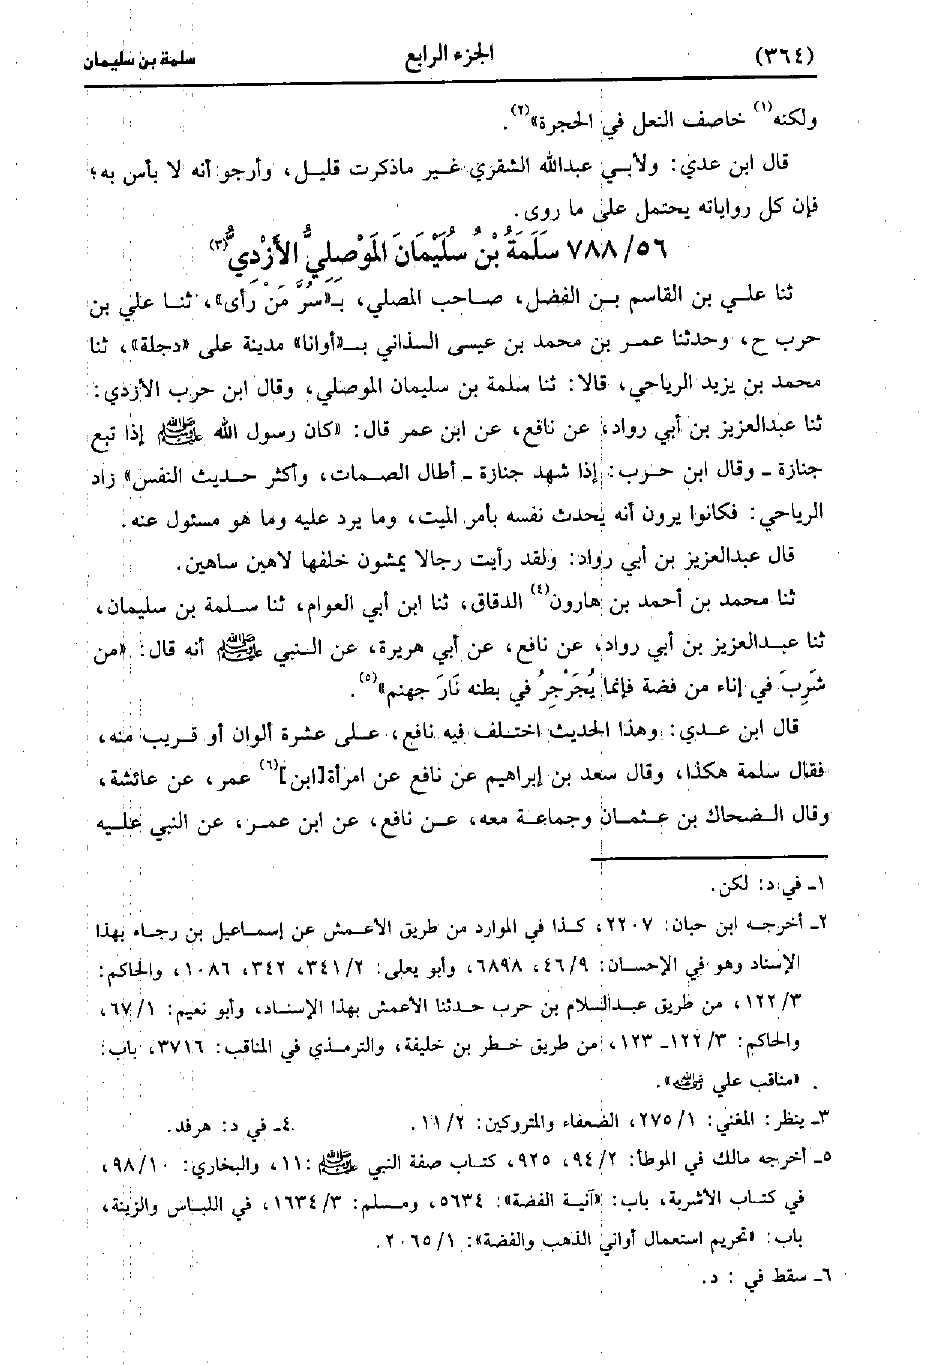 (٣٦٤) الجزء الرابع سلمة بن سليمان
ولكنه(١) خاصف النعل في الحجرة»(٢).
قال ابن عدي: ولأبي عبدالله الشقري غير ماذكرت قليل، وأرجو أنه لا بأس به؛
فإن كل رواياته يحتمل على ما روى.
٧٨٨/٥٦ سَلَمَةُ بْنُ سُلَيْمَانَ المَوْصِلِيُّ الأَزْدِيُّ(٣)
ثنا علي بن القاسم بن الفضل، صاحب المصلي، بـ«سُرَّ مَنْ رَأى»، ثنا علي بن
حرب ح، وحدثنا عمر بن محمد بن عيسى السذاني بـ«أوانا» مدينة على «دجلة»، ثنا
محمد بن يزيد الرياحي، قالا: ثنا سلمة بن سليمان الموصلي، وقال ابن حرب الأزدي:
ثنا عبدالعزيز بن أبي رواد، عن نافع، عن ابن عمر قال: «كان رسول الله ﷺ إذا تبع
جنازة ـ وقال ابن حرب: إذا شهد جنازة ـ أطال الصمات، وأكثر حديث النفس» زاد
الرياحي: فكانوا يرون أنه يحدث نفسه بأمر الميت، وما يرد عليه وما هو مسئول عنه.
قال عبدالعزيز بن أبي رواد: ولقد رأيت رجالا يمشون خلفها لاهين ساهين.
ثنا محمد بن أحمد بن هارون(٤) الدقاق، ثنا ابن أبي العوام، ثنا سلمة بن سليمان،
ثنا عبدالعزيز بن أبي رواد، عن نافع، عن أبي هريرة، عن النبي ﷺ أنه قال: «من
شَرِبَ في إناء من فضة فإنما يُجَرْجِرُ في بطنه نَارَ جهنم»(٥).
قال ابن عدي: وهذا الحديث اختلف فيه نافع، على عشرة ألوان أو قريب منه،
فقال سلمة هكذا، وقال سعد بن إبراهيم عن نافع عن امرأة[ابن](٦) عمر، عن عائشة،
وقال الضحاك بن عثمان وجماعة معه، عن نافع، عن ابن عمر، عن النبي عليه
١ـ في د: لكن.
٢ـ أخرجه ابن حبان: ٢٢٠٧، كذا في الموارد من طريق الأعمش عن إسماعيل بن رجاء بهذا
الإسناد وهو في الإحسان: ٤٦/٩، ٦٨٩٨، وأبو يعلى: ٣٤١/٢، ٣٤٢، ١٠٨٦، والحاكم:
١٢٢/٣، من طريق عبدالسلام بن حرب حدثنا الأعمش بهذا الإسناد، وأبو نعيم: ٦٧/١،
والحاكم: ١٢٢/٣ـ ١٢٣، من طريق خطر بن خليفة، والترمذي في المناقب: ٣٧١٦، باب:
«مناقب علي رضي الله عنه».
٣ـ ينظر: المغني: ٢٧٥/١، الضعفاء والمتروكين: ١١/٢. ٤ـ في د: هرفد.
٥ـ أخرجه مالك في الموطأ: ٩٤/٢، ٩٢٥، كتاب صفة النبي ﷺ :١١، والبخاري: ٩٨/١٠،
في كتاب الأشربة، باب: «آنية الفضة»: ٥٦٣٤، ومسلم: ١٦٣٤/٣، في اللباس والزينة،
باب: «تحريم استعمال أواني الذهب والفضة»: ٢٠٦٥/١.
٦ـ سقط في : د.